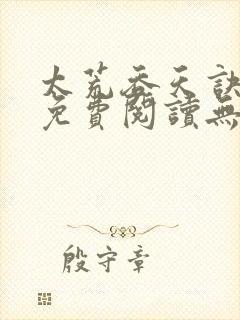 太荒吞天訣
免費閱讀無
殷守章